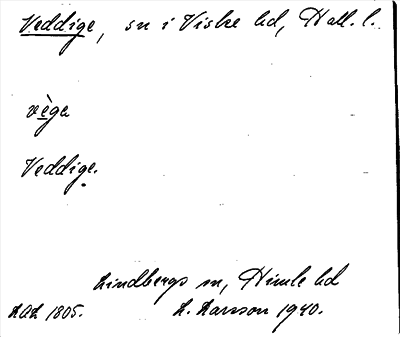 Veddige, sn i Viske hd, Hall. l.
vèga
Veddige.
Lindbergs sn, Himle hd
LAL 1805. L. Larsson 1940.